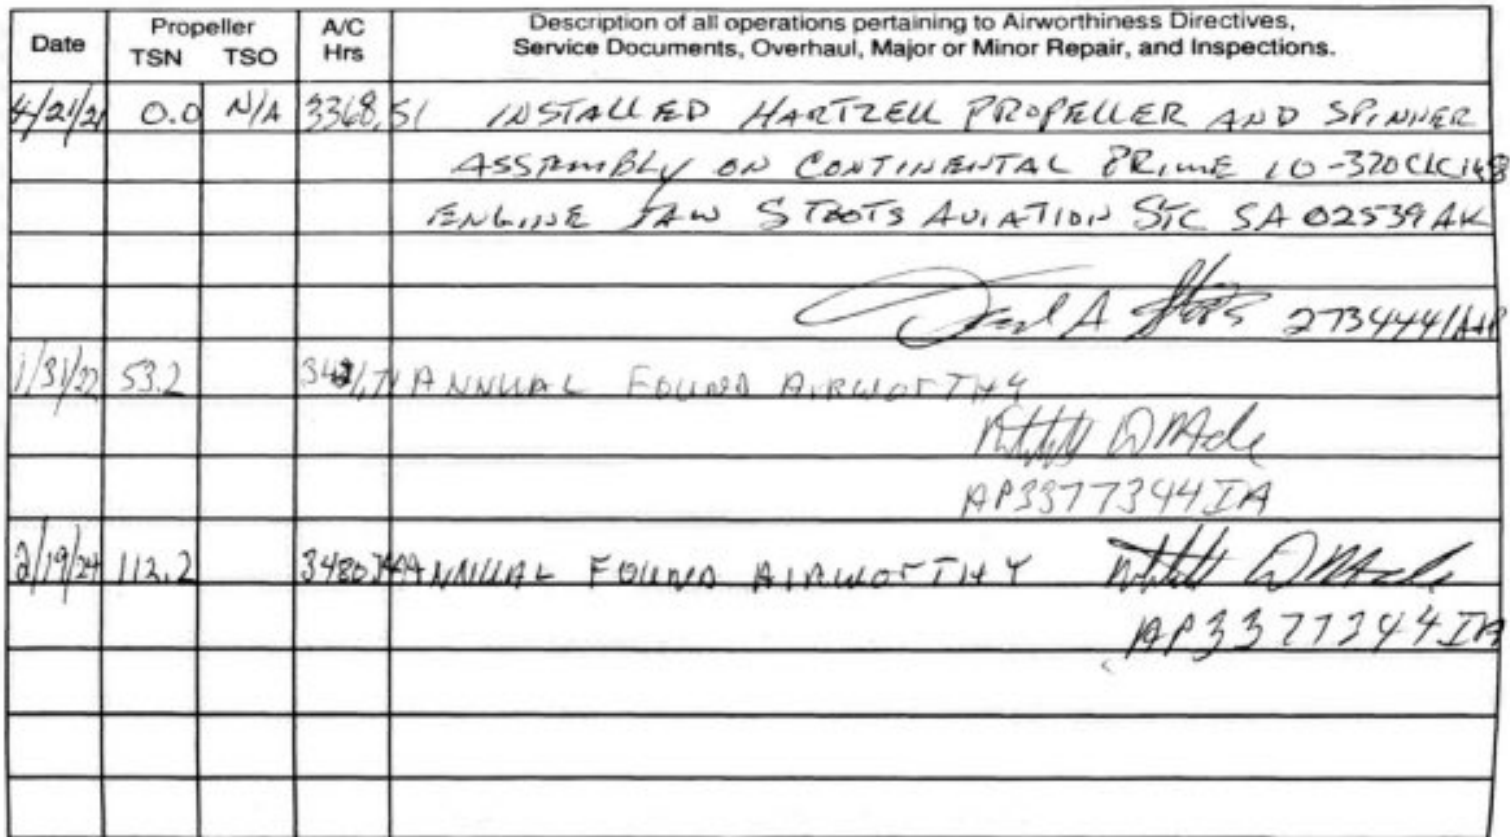 Date Propeller TSN TSO A/C Hrs Description of all operations pertaining to Airworthiness Directives,
Service Documents, Overhaul, Major or Minor Repair, and Inspections.
4/21/21 0.0 N/A 3368.51 INSTALLED HARTZELL PROPELLER AND SPINNER
ASSEMBLY ON CONTINENTAL PRIME IO-370
ENGINE IAW STOOTS AVIATION STC SA02539AK
A 2734441 A+P
1/31/22 53.2 ANNUAL FOUND AIRWORTHY
AP3377344IA
2/19/24 112.2 ANNUAL FOUND AIRWORTHY
AP3377344IA